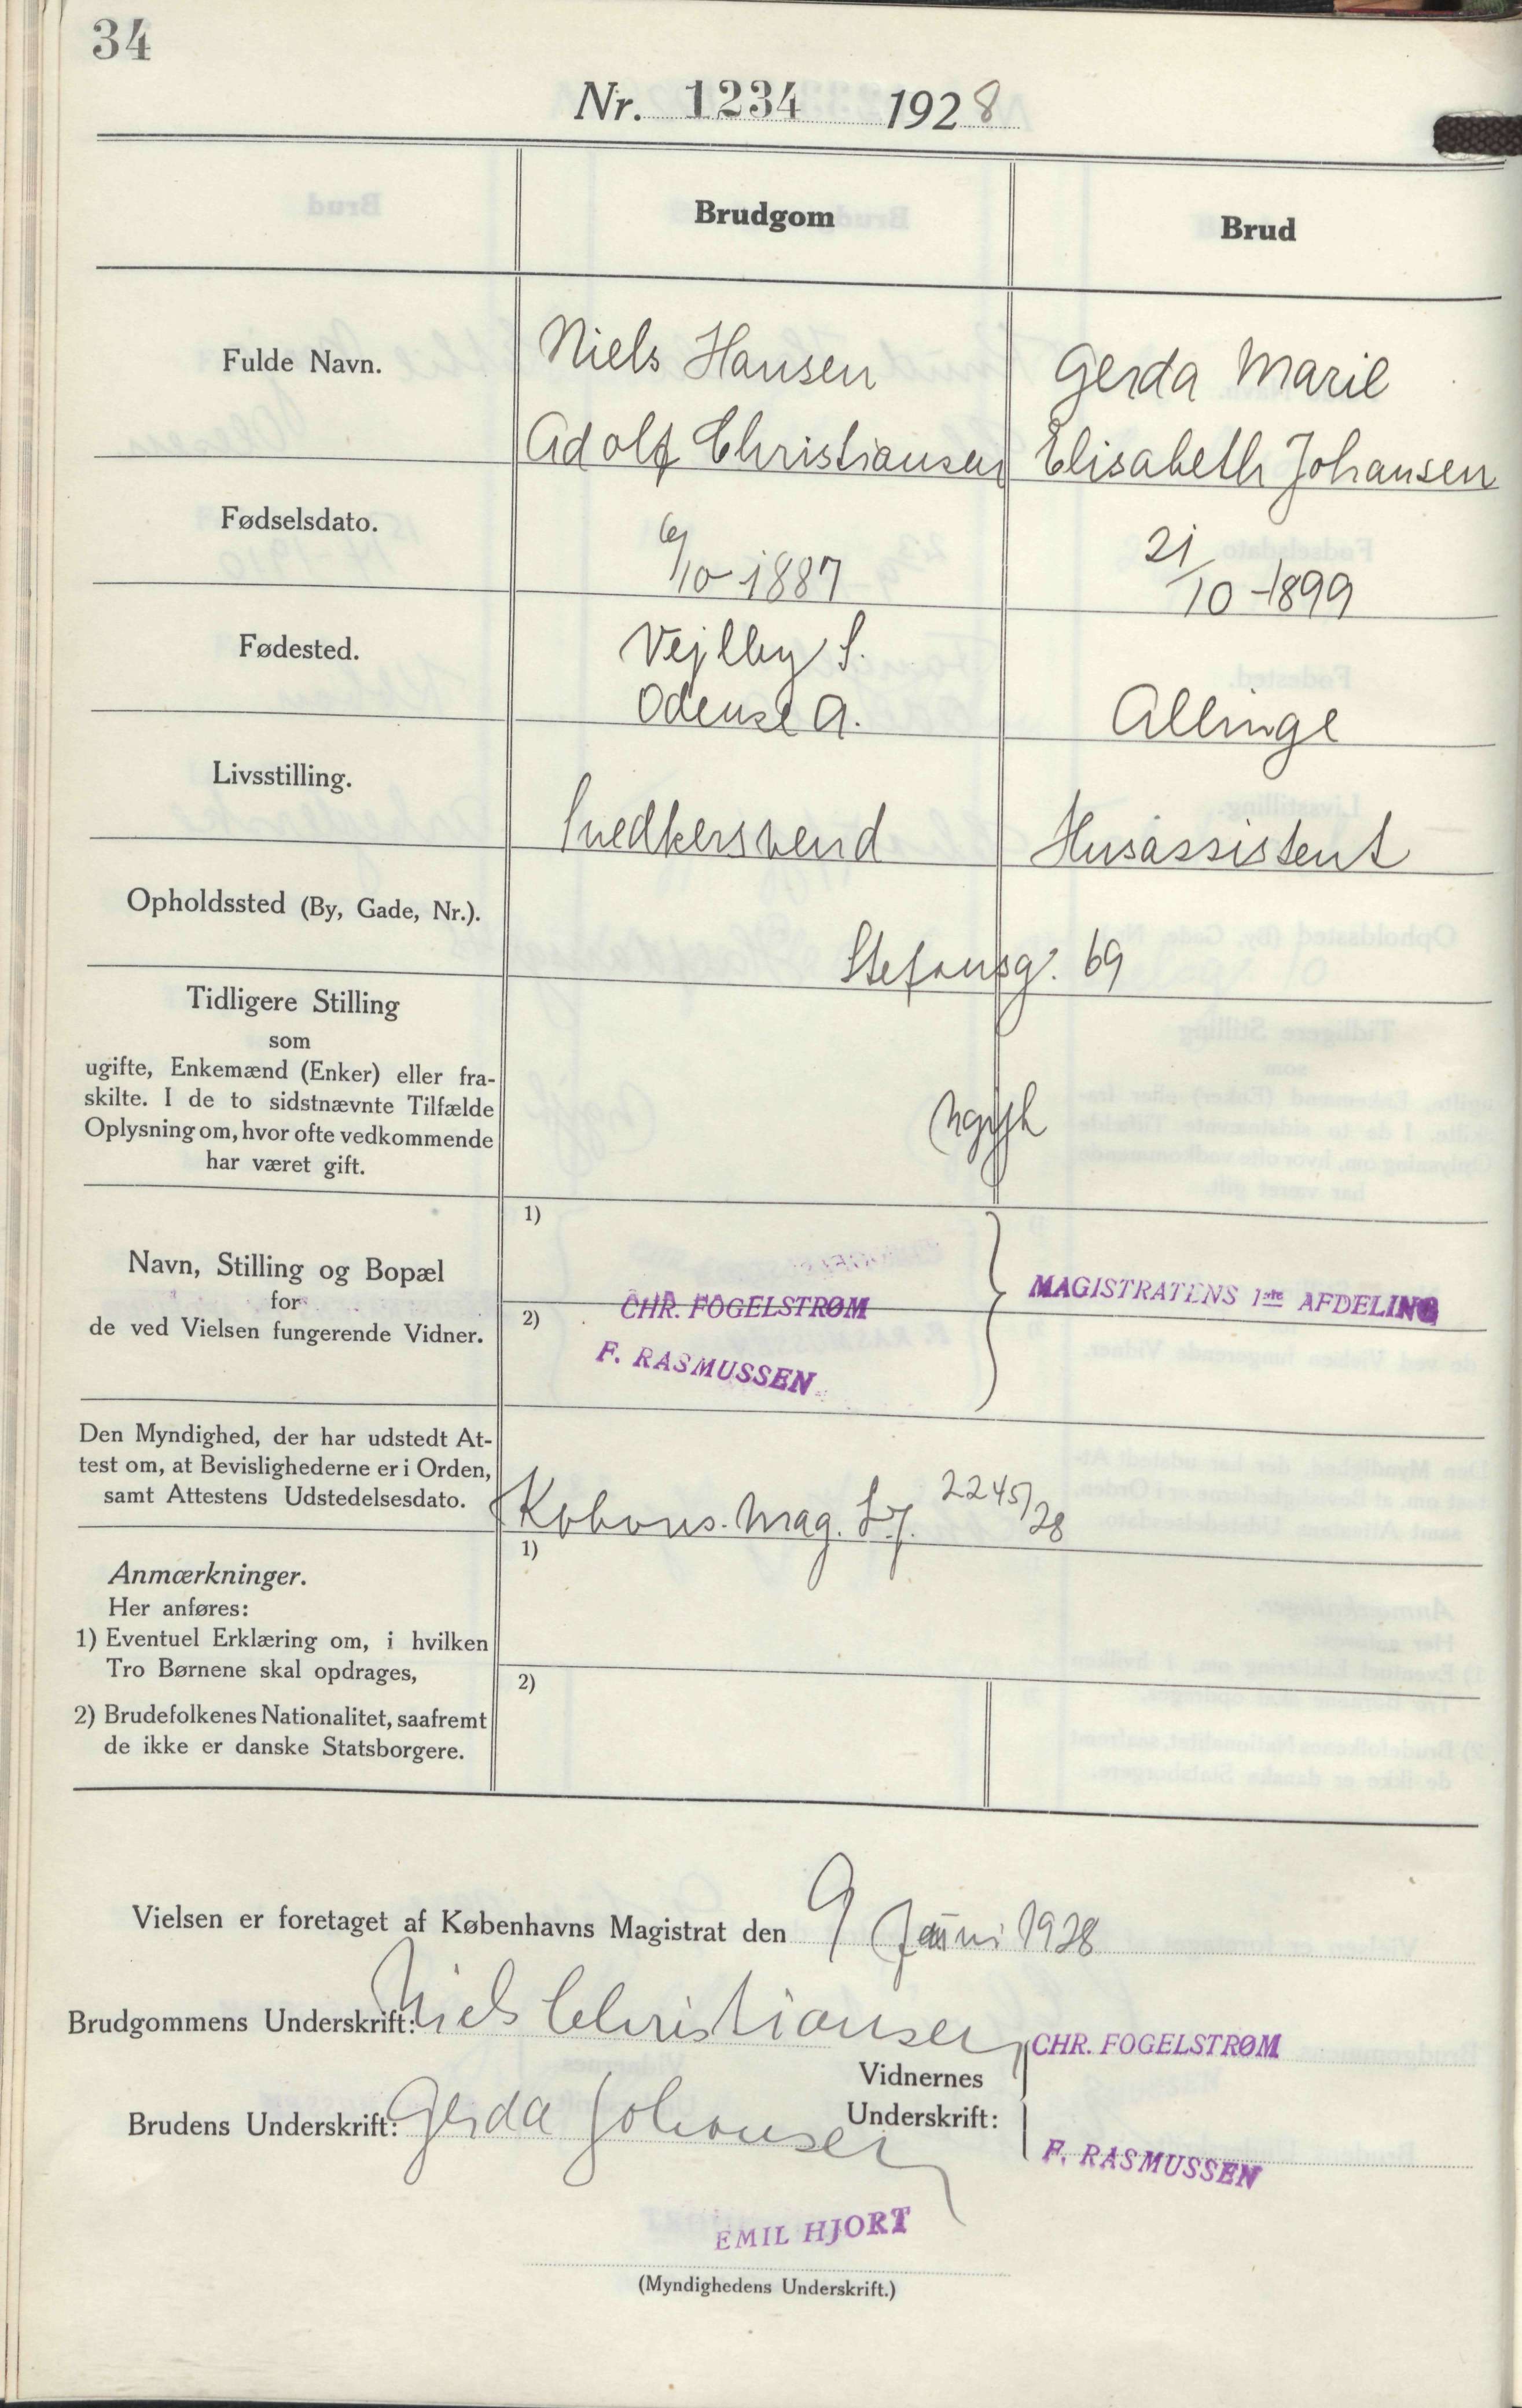 34
Nr. 1234 1928
Brudgom
Brud
Fulde Navn.
Niels Hansen
Adolf Christiansen
Gerda Marie
Elisabeth Johansen
Fødselsdato.
6/10-1887
21/10-1899
Fødested.
Vejlby S.
Odense A.
Allinge
Livsstilling.
Snedkersvend
Husassistent
Opholdssted (By, Gade, Nr.).
Stefansg. 69
Tidligere Stilling
som
ugifte, Enkemænd (Enker) eller fra-
skilte. I de to sidstnævnte Tilfælde
Oplysning om, hvor ofte vedkommende
har været gift.
ugift
Navn, Stilling og Bopæl
for
de ved Vielsen fungerende Vidner.
1)
2)
CHR. FOGELSTRØM
F. RASMUSSEN
MAGISTRATENS 1ste AFDELING
Den Myndighed, der har udstedt At-
test om, at Bevislighederne er i Orden,
samt Attestens Udstedelsesdato.
Kbhvns. Mag. 2245/28
Anmærkninger.
Her anføres:
1) Eventuel Erklæring om, i hvilken
Tro Børnene skal opdrages,
2) Brudefolkenes Nationalitet, saafremt
de ikke er danske Statsborgere.
1)
2)
Vielsen er foretaget af Københavns Magistrat den 9 Juni 1928
Brudgommens Underskrift: Niels Christiansen
Vidnernes
Underskrift:
CHR. FOGELSTRØM
Brudens Underskrift: Gerda Johansen
F. RASMUSSEN
EMIL HJORT
(Myndighedens Underskrift.)